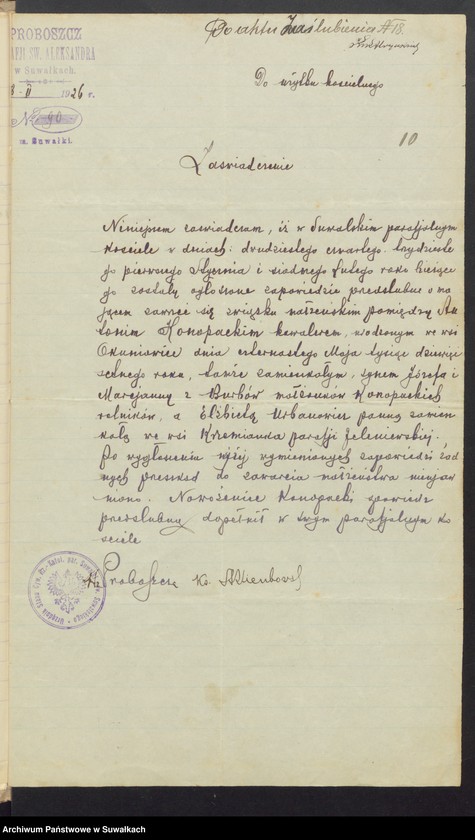 PROBOSZCZ
AFJI ŚW. ALEKSANDRA
w Suwałkach.
8 - II 1926 r.
№ 90
m. Suwałki.
Do aktu zaślubienia № 18.
Do użytku kościelnego
10
Zaświadczenie
Niniejszem zaświadczam, iż w Suwalskim parafjalnym
kościele w dniach: dwudziestego czwartego, trzydzieste
go pierwszego Stycznia i siódmego Lutego roku bieżące
go zostały ogłoszone zapowiedzie przedślubne o ma
jącem zawrzeć się związku małżeńskim pomiędzy An
tonim Konopackim kawalerem, urodzonym we wsi
Okuniowiec dnia czternastego Maja tysiąc dziewięć
setnego roku, tamże zamieszkałym, synem Józefa i
Marcjanny z Burbów małżonków Konopackich
rolników, a Elżbietą Urbanowicz panną zamiesz
kałą we wsi Krzemianka parafji Jeleniewskiej.
Po wygłoszeniu wyżej wymienionych zapowiedzi żad
nych przeszkód do zawarcia małżeństwa niezjaw
niono. Narzeczony Konopacki spowiedź
przedślubną dopełnił w swym parafjalnym ko
ściele
Proboszcz Ks.
Archiwum Państwowe w Suwałkach